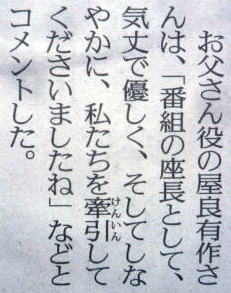 お父さん役の屋良有作さ
んは、「番組の座長として、
気丈で優しく、そしてしな
やかに、私たちを牽引けんいんして
くださいましたね」などと
コメントした。